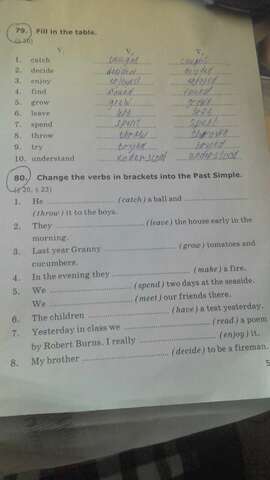 79. Fill in the table.
(§ 20) V₁ V₂ V₃
1. catch caught caught
2. decide decided
3. enjoy enjoyed enjoyed
4. find found found
5. grow grew
6. leave left left
7. spend spent spent
8. throw
9. try
10. understand understood understood
80. Change the verbs in brackets into the Past Simple.
(§ 20, § 23)
1. He (catch) a ball and
(throw) it to the boys.
2. They (leave) the house early in the
morning.
3. Last year Granny (grow) tomatoes and
cucumbers.
4. In the evening they (make) a fire.
5. We (spend) two days at the seaside.
We (meet) our friends there.
6. The children (have) a test yesterday.
7. Yesterday in class we (read) a poem
by Robert Burns. I really (enjoy) it.
8. My brother (decide) to be a fireman.
5